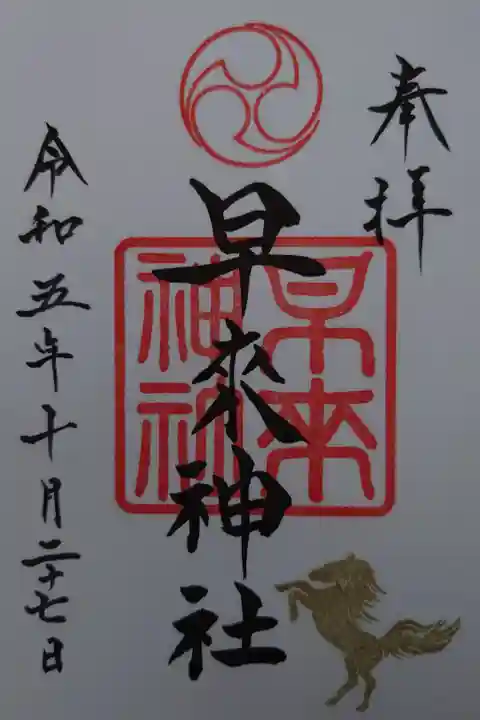 奉拝
早来神社
早来神社
令和五年十月二十七日